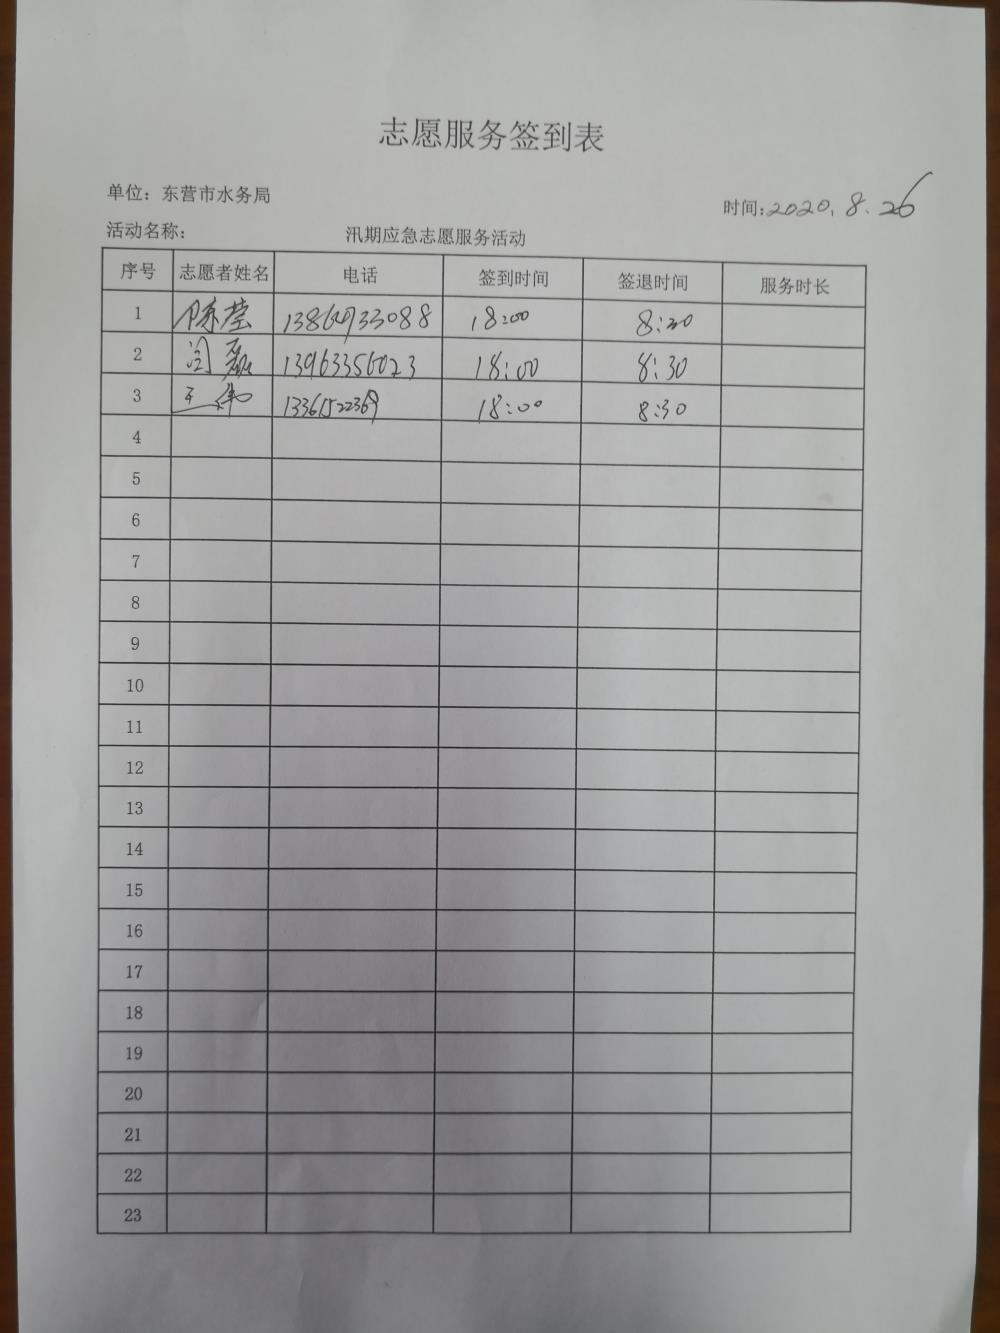 志愿服务签到表
单位：东营市水务局
时间:2020.8.26
活动名称： 汛期应急志愿服务活动
序号 志愿者姓名 电话 签到时间 签退时间 服务时长
1 陈莹 18:00 8:30
2 闫磊 13963356023 18:00 8:30
3 王伟 13361522369 18:00 8:30
4
5
6
7
8
9
10
11
12
13
14
15
16
17
18
19
20
21
22
23